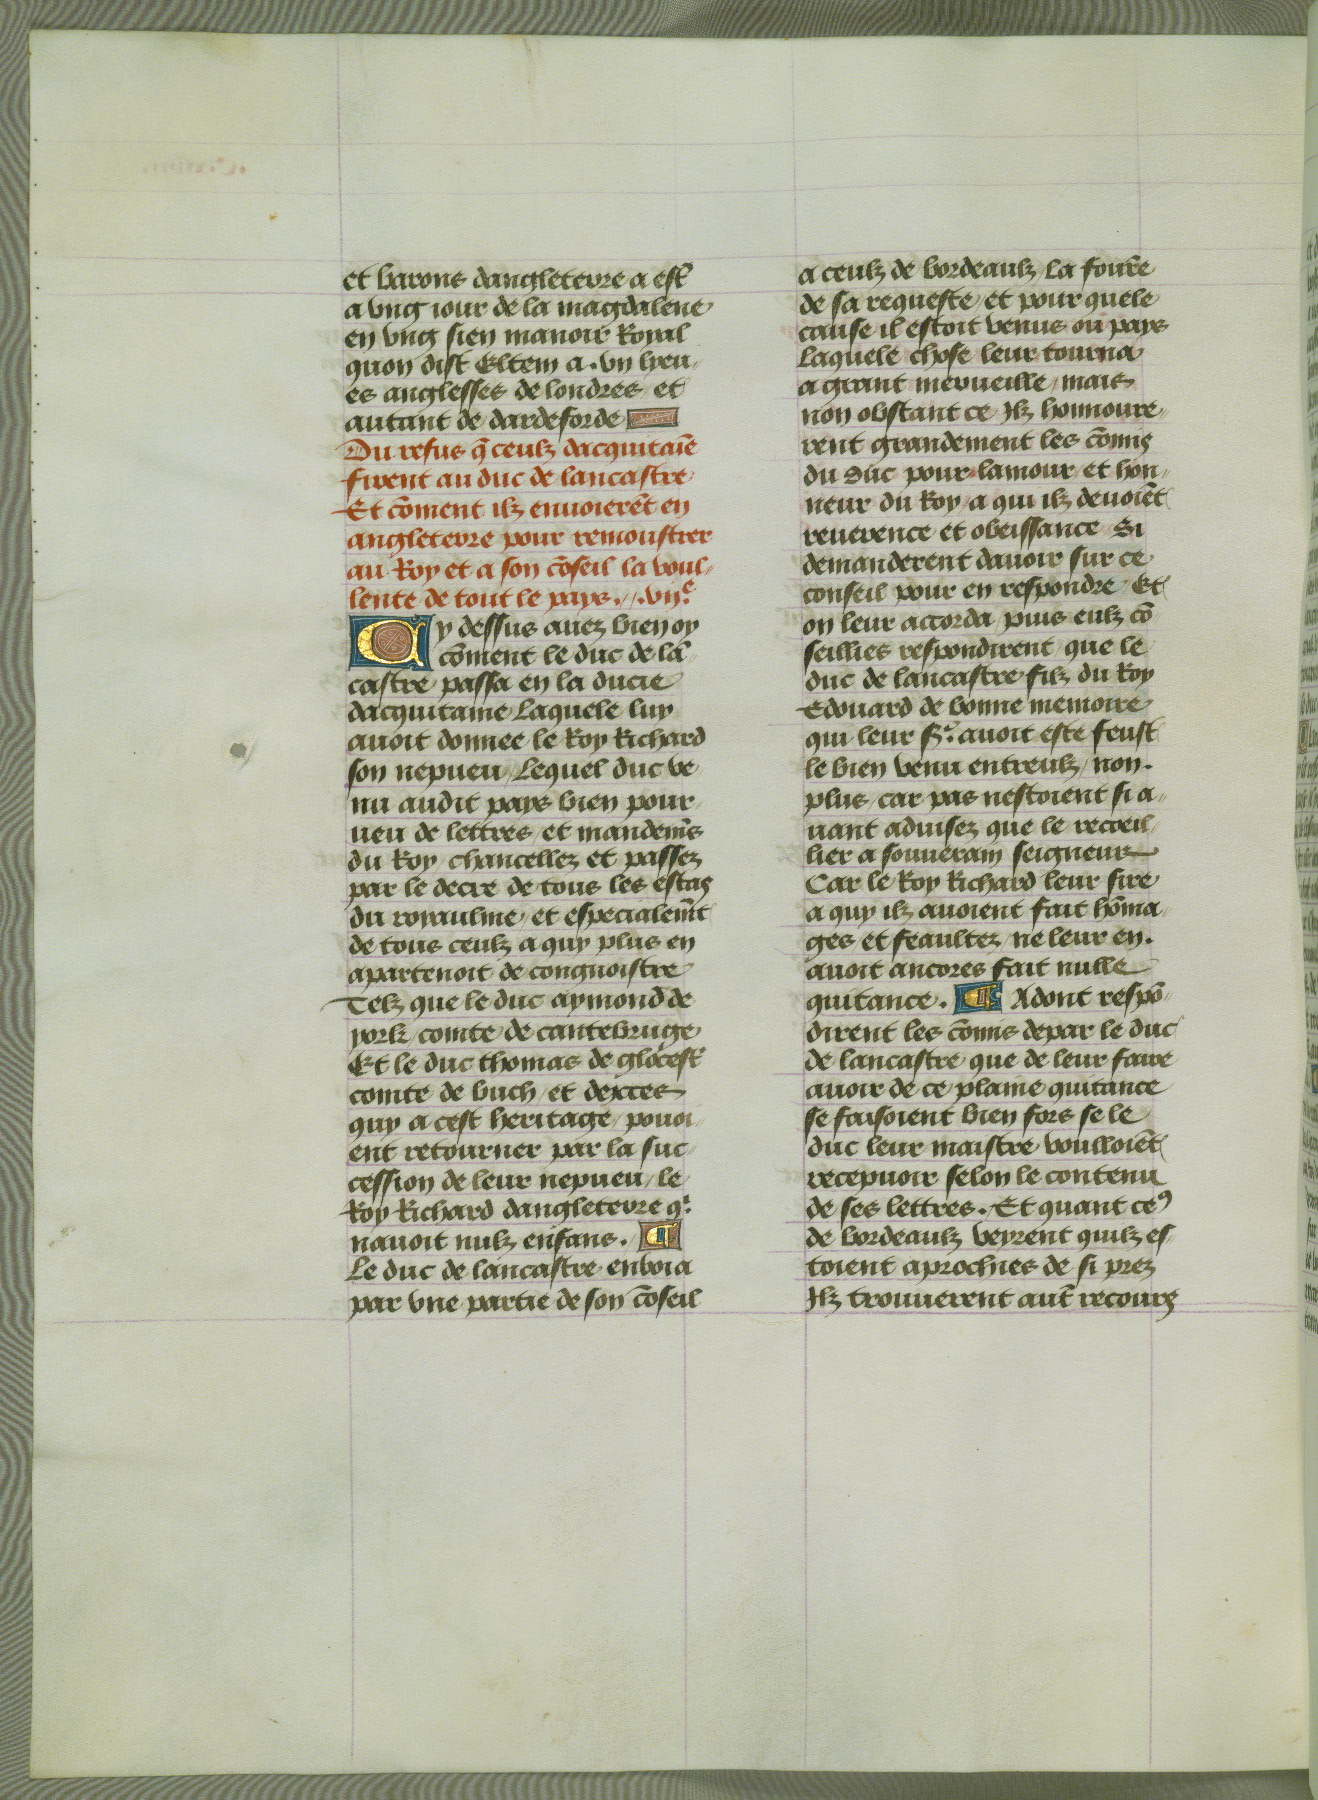 et barons dangleterre a estr̄
a vng iour de la magdalene
en vng sien manoir Royal
quon dist Eltem a . vij lyeu-
es anglesses de londres / et
autant de dardeforde
Du refus q̄ ceulz dacquitaīe
firent au duc de lancastre
Et cōment ilz enuoierēt en
angleterre pour remoustrer
au Roy et a son cōseil la voul-
lente de tout le pays . . vijᵉ
Cy dessus auez bien oy
cōment le duc de lā-
castre passa en la ducie
dacquitaine Laquele luy
auoit donnee le Roy Richard
son nepueu / Lequel duc ve-
nu audit pays bien pour-
ueu de lettres / et mandemēs
du Roy chancellez et passez
par le decre de tous les estas
du royaulme / et especialemēt
de tous ceulz a quy plus en
apartenoit de congnoistre
Telz que le duc aymond de
york / comte de cantebruge
Et le duc thomas de glōcestr̄
comte de buch / et dexces
quy a cest heritage / pouoi-
ent retourner par la suc-
cession de leur nepueu / le
Roy Richard dangleterre qⁱ
nauoit nulz enfans .
Le duc de lancastre enuoia
par vne partie de son cōseil
a ceulz de bordeaulz / La fourē
de sa requeste / et pour quele
cause il estoit venus ou pays
Laquele chose leur tourna
a grant merueille / mais
non obstant ce Ilz honnoure-
rent grandement les cōmis
du duc pour lamour et hon-
neur du Roy / a qui ilz deuoiēt
reuerence et obeissance / Si
demanderent dauoir sur ce
conseil pour en respondre / Et
on leur accorda / puis eulz cō
seillies respondirent que le
duc de lancastre filz du Roy
Edouard de bonne memoire
qui leur Sʳ. auoit este feust
le bien venu entreulz / non .
plus / car pas nestoient si a-
uant aduisez que le recoeil-
lier a souuerain seigneur
Car le Roy Richard leur sire
a quy ilz auoient fait hōma-
ges et feaultez / ne leur en .
auoit ancores fait nulle
quitance . Adont respō-
dirent les cōmis depar le duc
de lancastre que de leur faire
auoir de ce plaine quitance
se faisoient bien fors se le
duc leur maistre voulloiēt
recepuoir selon le contenu
de ses lettres . Et quant ceꝰ
de bordeaulz veyrent quilz es-
toient aprochies de si prez
Ilz trouuerent autr̄ recours